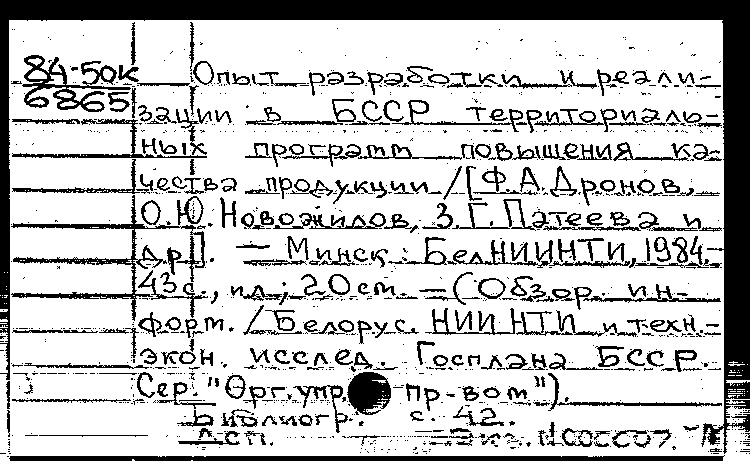 84-50к Опыт разработки и реали-
6865 зации в БССР территориаль-
ных программ повышения ка-
чества продукции /[Ф.А.Дронов,
О.Ю.Новожилов, З.Г.Патеева и
др]. — Минск: БелНИИНТИ, 1984.-
43с., ил; 20см. — (Обзор. ин-
форм. /Белорус. НИИ НТИ и техн.-
экон. исслед. Госплана БССР.
Сер. "Орг.упр. пр-вом").
Библиогр. с. 42.
ДСП.